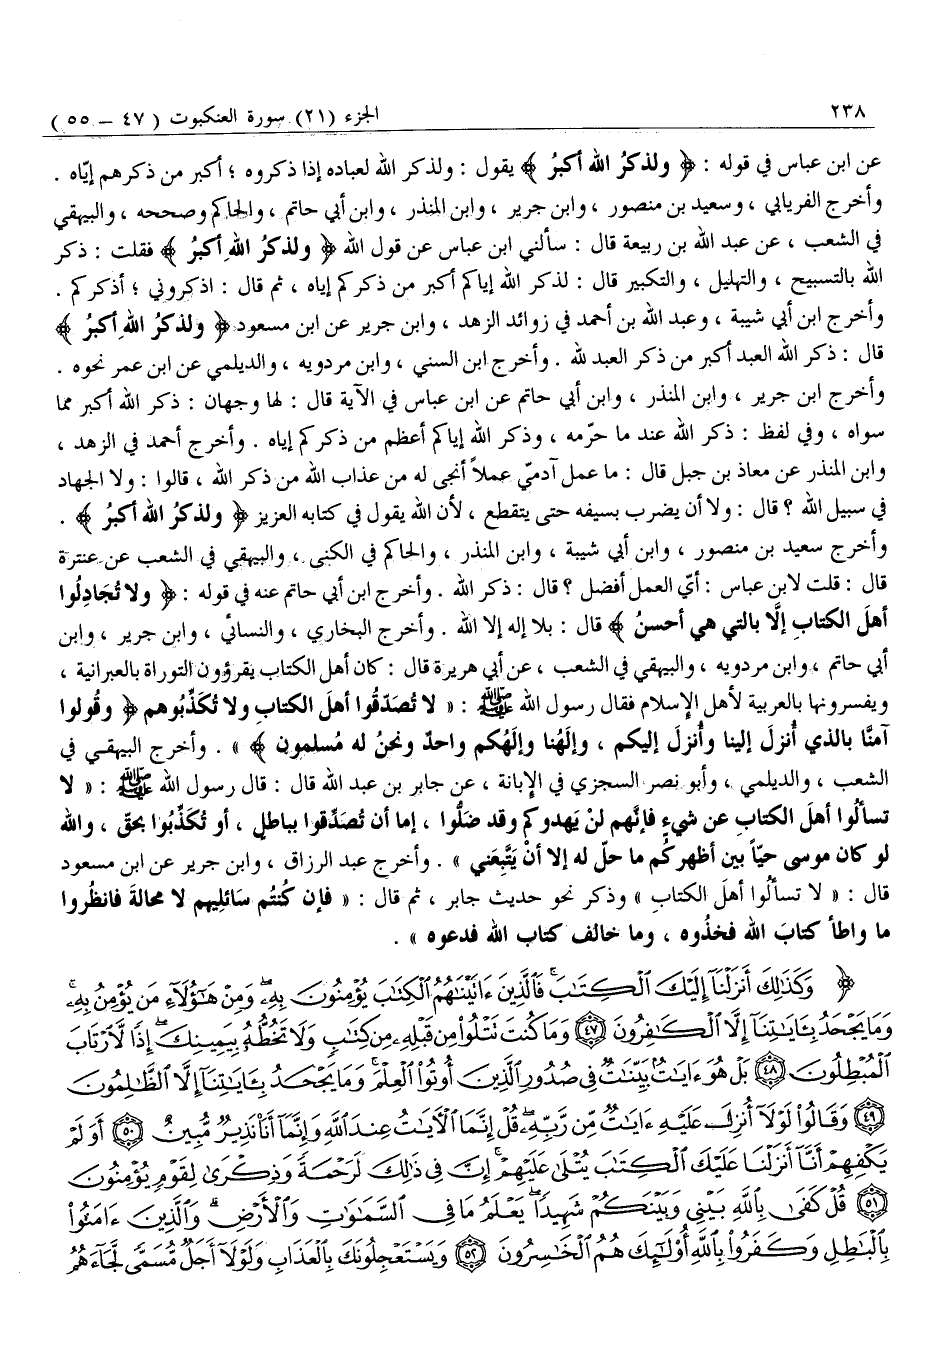 ٢٣٨ الجزء (٢١) سورة العنكبوت ( ٤٧ – ٥٥ )
عن ابن عباس في قوله : ﴿ ولذكرُ الله أكبرُ ﴾ يقول : ولذكر الله لعباده إذا ذكروه ؛ أكبر من ذكرهم إيّاه .
وأخرج الفريابي ، وسعيد بن منصور ، وابن جرير ، وابن المنذر ، وابن أبي حاتم ، والحاكم وصححه ، والبيهقي
في الشعب ، عن عبد الله بن ربيعة قال : سألني ابن عباس عن قول الله ﴿ ولذكرُ الله أكبرُ ﴾ فقلت : ذكر
الله بالتسبيح ، والتهليل ، والتكبير قال : لذكر الله إياكم أكبر من ذكركم إياه ، ثم قال : اذكروني ؛ أذكركم .
وأخرج ابن أبي شيبة ، وعبد الله بن أحمد في زوائد الزهد ، وابن جرير عن ابن مسعود ﴿ ولذكرُ الله أكبرُ ﴾
قال : ذكر الله العبد أكبر من ذكر العبد لله . وأخرج ابن السني ، وابن مردويه ، والديلمي عن ابن عمر نحوه .
وأخرج ابن جرير ، وابن المنذر ، وابن أبي حاتم عن ابن عباس في الآية قال : لها وجهان : ذكر الله أكبر مما
سواه ، وفي لفظ : ذكر الله عند ما حرّمه ، وذكر الله إياكم أعظم من ذكركم إياه . وأخرج أحمد في الزهد ،
وابن المنذر عن معاذ بن جبل قال : ما عمل آدميّ عملاً أنجى له من عذاب الله من ذكر الله ، قالوا : ولا الجهاد
في سبيل الله ؟ قال : ولا أن يضرب بسيفه حتى يتقطع ، لأن الله يقول في كتابه العزيز ﴿ ولذكرُ الله أكبرُ ﴾ .
وأخرج سعيد بن منصور ، وابن أبي شيبة ، وابن المنذر ، والحاكم في الكنى ، والبيهقي في الشعب عن عنترة
قال : قلت لابن عباس : أيّ العمل أفضل ؟ قال : ذكر الله . وأخرج ابن أبي حاتم عنه في قوله : ﴿ ولا تُجَادِلُوا
أهلَ الكتابِ إلَّا بالتي هي أحسنُ ﴾ قال : بلا إله إلا الله . وأخرج البخاري ، والنسائي ، وابن جرير ، وابن
أبي حاتم ، وابن مردويه ، والبيهقي في الشعب ، عن أبي هريرة قال : كان أهل الكتاب يقرؤون التوراة بالعبرانية ،
ويفسرونها بالعربية لأهل الإسلام فقال رسول الله ﷺ : « لا تُصَدّقُوا أهلَ الكتابِ ولا تُكَذّبُوهم ﴿ وقُولوا
آمنَّا بالذي أُنزلَ إلينا وأُنزلَ إليكم ، وإلَهُنا وإلَهُكم واحدٌ ونحنُ له مُسلمون ﴾ » . وأخرج البيهقي في
الشعب ، والديلمي ، وأبو نصر السجزي في الإبانة ، عن جابر بن عبد الله قال : قال رسول الله ﷺ : « لا
تسألُوا أهلَ الكتابِ عن شيءٍ فإنَّهم لنْ يَهدوكم وقد ضلُّوا ، إما أن تُصَدِّقوا بباطلٍ ، أو تُكَذِّبُوا بحقّ ، والله
لو كان موسى حيّاً بين أظهرِكُم ما حلّ له إلا أنْ يَتَّبعَني » . وأخرج عبد الرزاق ، وابن جرير عن ابن مسعود
قال : « لا تسألُوا أهلَ الكتابِ » وذكر نحو حديث جابر ، ثم قال : « فإن كُنتُم سَائليهم لا محالةَ فانظُروا
ما واطأ كتابَ الله فخذُوه ، وما خالف كتاب الله فدعوه » .
﴿ وَكَذَٰلِكَ أَنزَلْنَآ إِلَيْكَ ٱلْكِتَٰبَ ۚ فَٱلَّذِينَ ءَاتَيْنَٰهُمُ ٱلْكِتَٰبَ يُؤْمِنُونَ بِهِۦ ۖ وَمِنْ هَٰٓؤُلَآءِ مَن يُؤْمِنُ بِهِۦ ۚ
وَمَا يَجْحَدُ بِـَٔايَٰتِنَآ إِلَّا ٱلْكَٰفِرُونَ ﴿٤٧﴾ وَمَا كُنتَ تَتْلُوا۟ مِن قَبْلِهِۦ مِن كِتَٰبٍ وَلَا تَخُطُّهُۥ بِيَمِينِكَ ۖ إِذًا لَّٱرْتَابَ
ٱلْمُبْطِلُونَ ﴿٤٨﴾ بَلْ هُوَ ءَايَٰتٌۢ بَيِّنَٰتٌ فِى صُدُورِ ٱلَّذِينَ أُوتُوا۟ ٱلْعِلْمَ ۚ وَمَا يَجْحَدُ بِـَٔايَٰتِنَآ إِلَّا ٱلظَّٰلِمُونَ
﴿٤٩﴾ وَقَالُوا۟ لَوْلَآ أُنزِلَ عَلَيْهِ ءَايَٰتٌ مِّن رَّبِّهِۦ ۖ قُلْ إِنَّمَا ٱلْءَايَٰتُ عِندَ ٱللَّهِ وَإِنَّمَآ أَنَا۠ نَذِيرٌ مُّبِينٌ ﴿٥٠﴾ أَوَلَمْ
يَكْفِهِمْ أَنَّآ أَنزَلْنَا عَلَيْكَ ٱلْكِتَٰبَ يُتْلَىٰ عَلَيْهِمْ ۚ إِنَّ فِى ذَٰلِكَ لَرَحْمَةً وَذِكْرَىٰ لِقَوْمٍ يُؤْمِنُونَ
﴿٥١﴾ قُلْ كَفَىٰ بِٱللَّهِ بَيْنِى وَبَيْنَكُمْ شَهِيدًا ۖ يَعْلَمُ مَا فِى ٱلسَّمَٰوَٰتِ وَٱلْأَرْضِ ۗ وَٱلَّذِينَ ءَامَنُوا۟
بِٱلْبَٰطِلِ وَكَفَرُوا۟ بِٱللَّهِ أُو۟لَٰٓئِكَ هُمُ ٱلْخَٰسِرُونَ ﴿٥٢﴾ وَيَسْتَعْجِلُونَكَ بِٱلْعَذَابِ ۚ وَلَوْلَآ أَجَلٌ مُّسَمًّى لَّجَآءَهُمُ